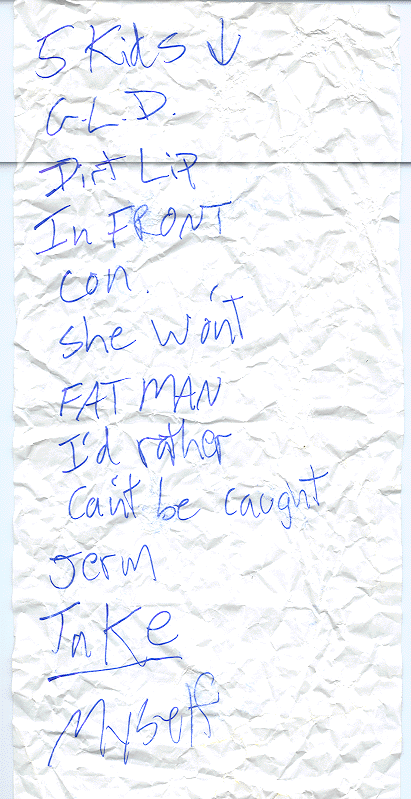 5 Kids ↓
G.L.D.
Dirt Lip
In FRONT
con.
she won't
FAT MAN
I'd rather
can't be caught
Jerm
TaKe
Myself